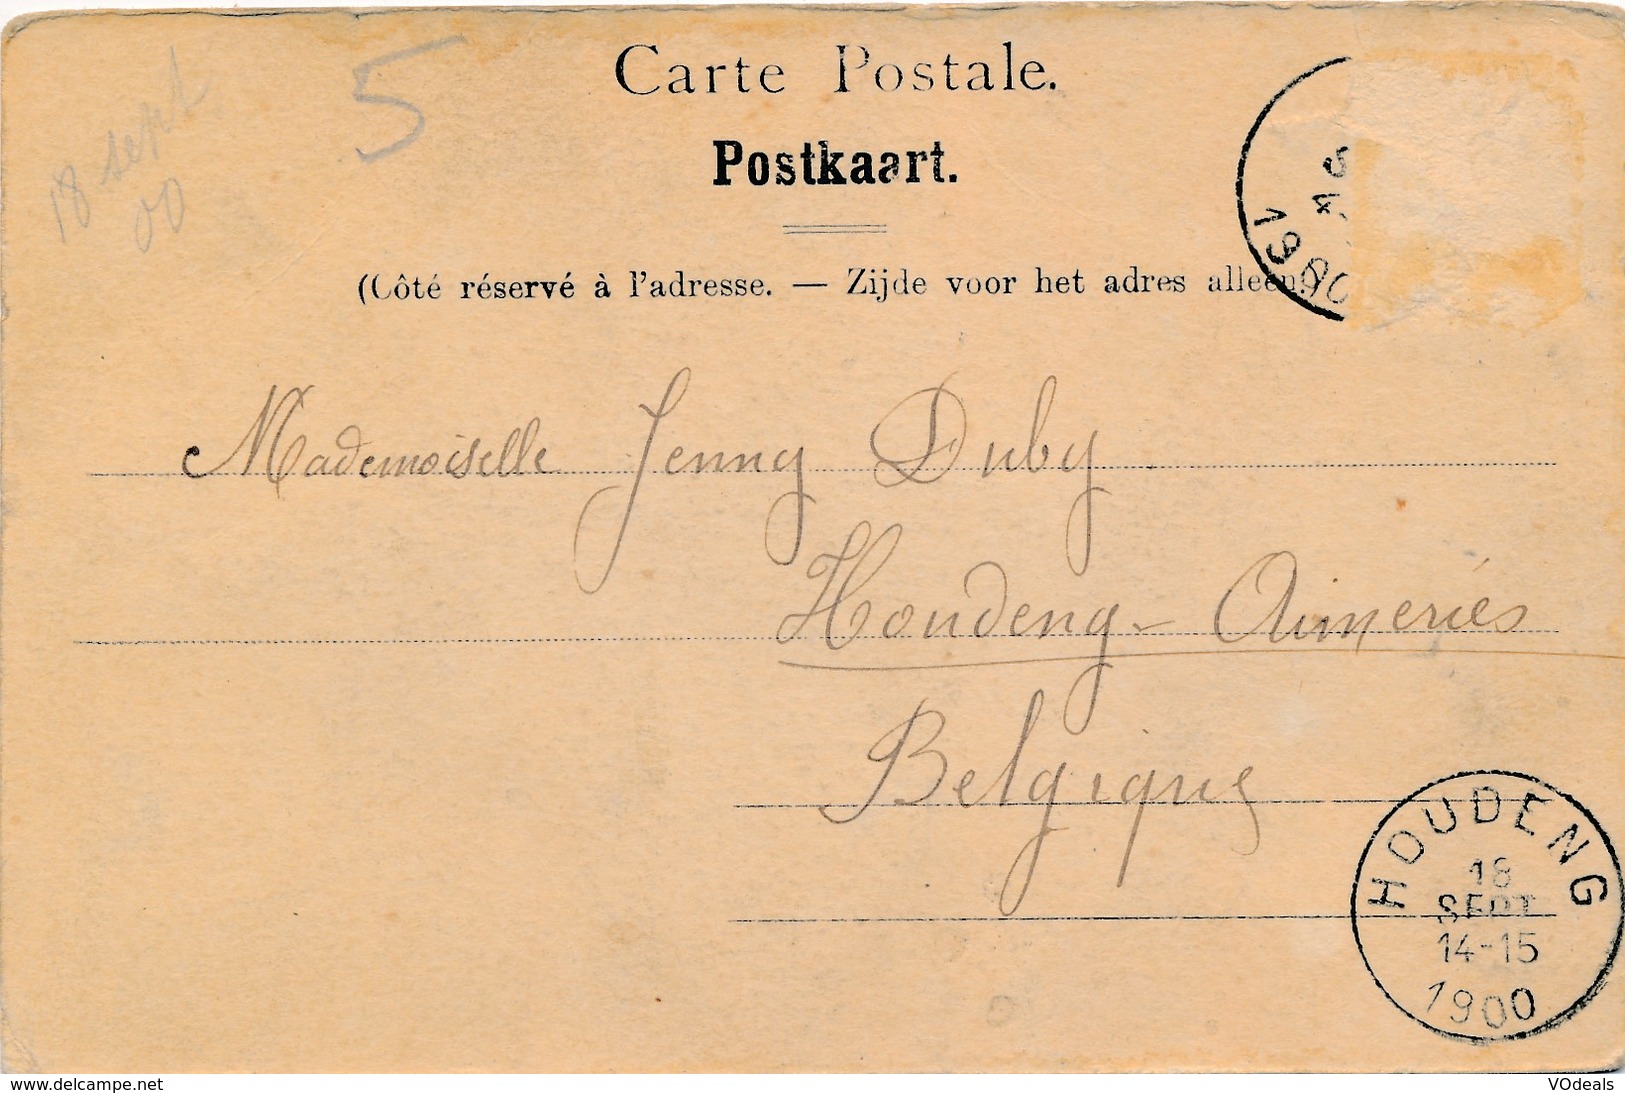 18 sept
00
5
Carte Postale.
Postkaart.
(Côté réservé à l'adresse. — Zijde voor het adres alleen.)
1900
Mademoiselle Jenny Duby
Houdeng-Aimeries
Belgique
HOUDENG
18
SEPT
14-15
1900
www.delcampe.net
VOdeals